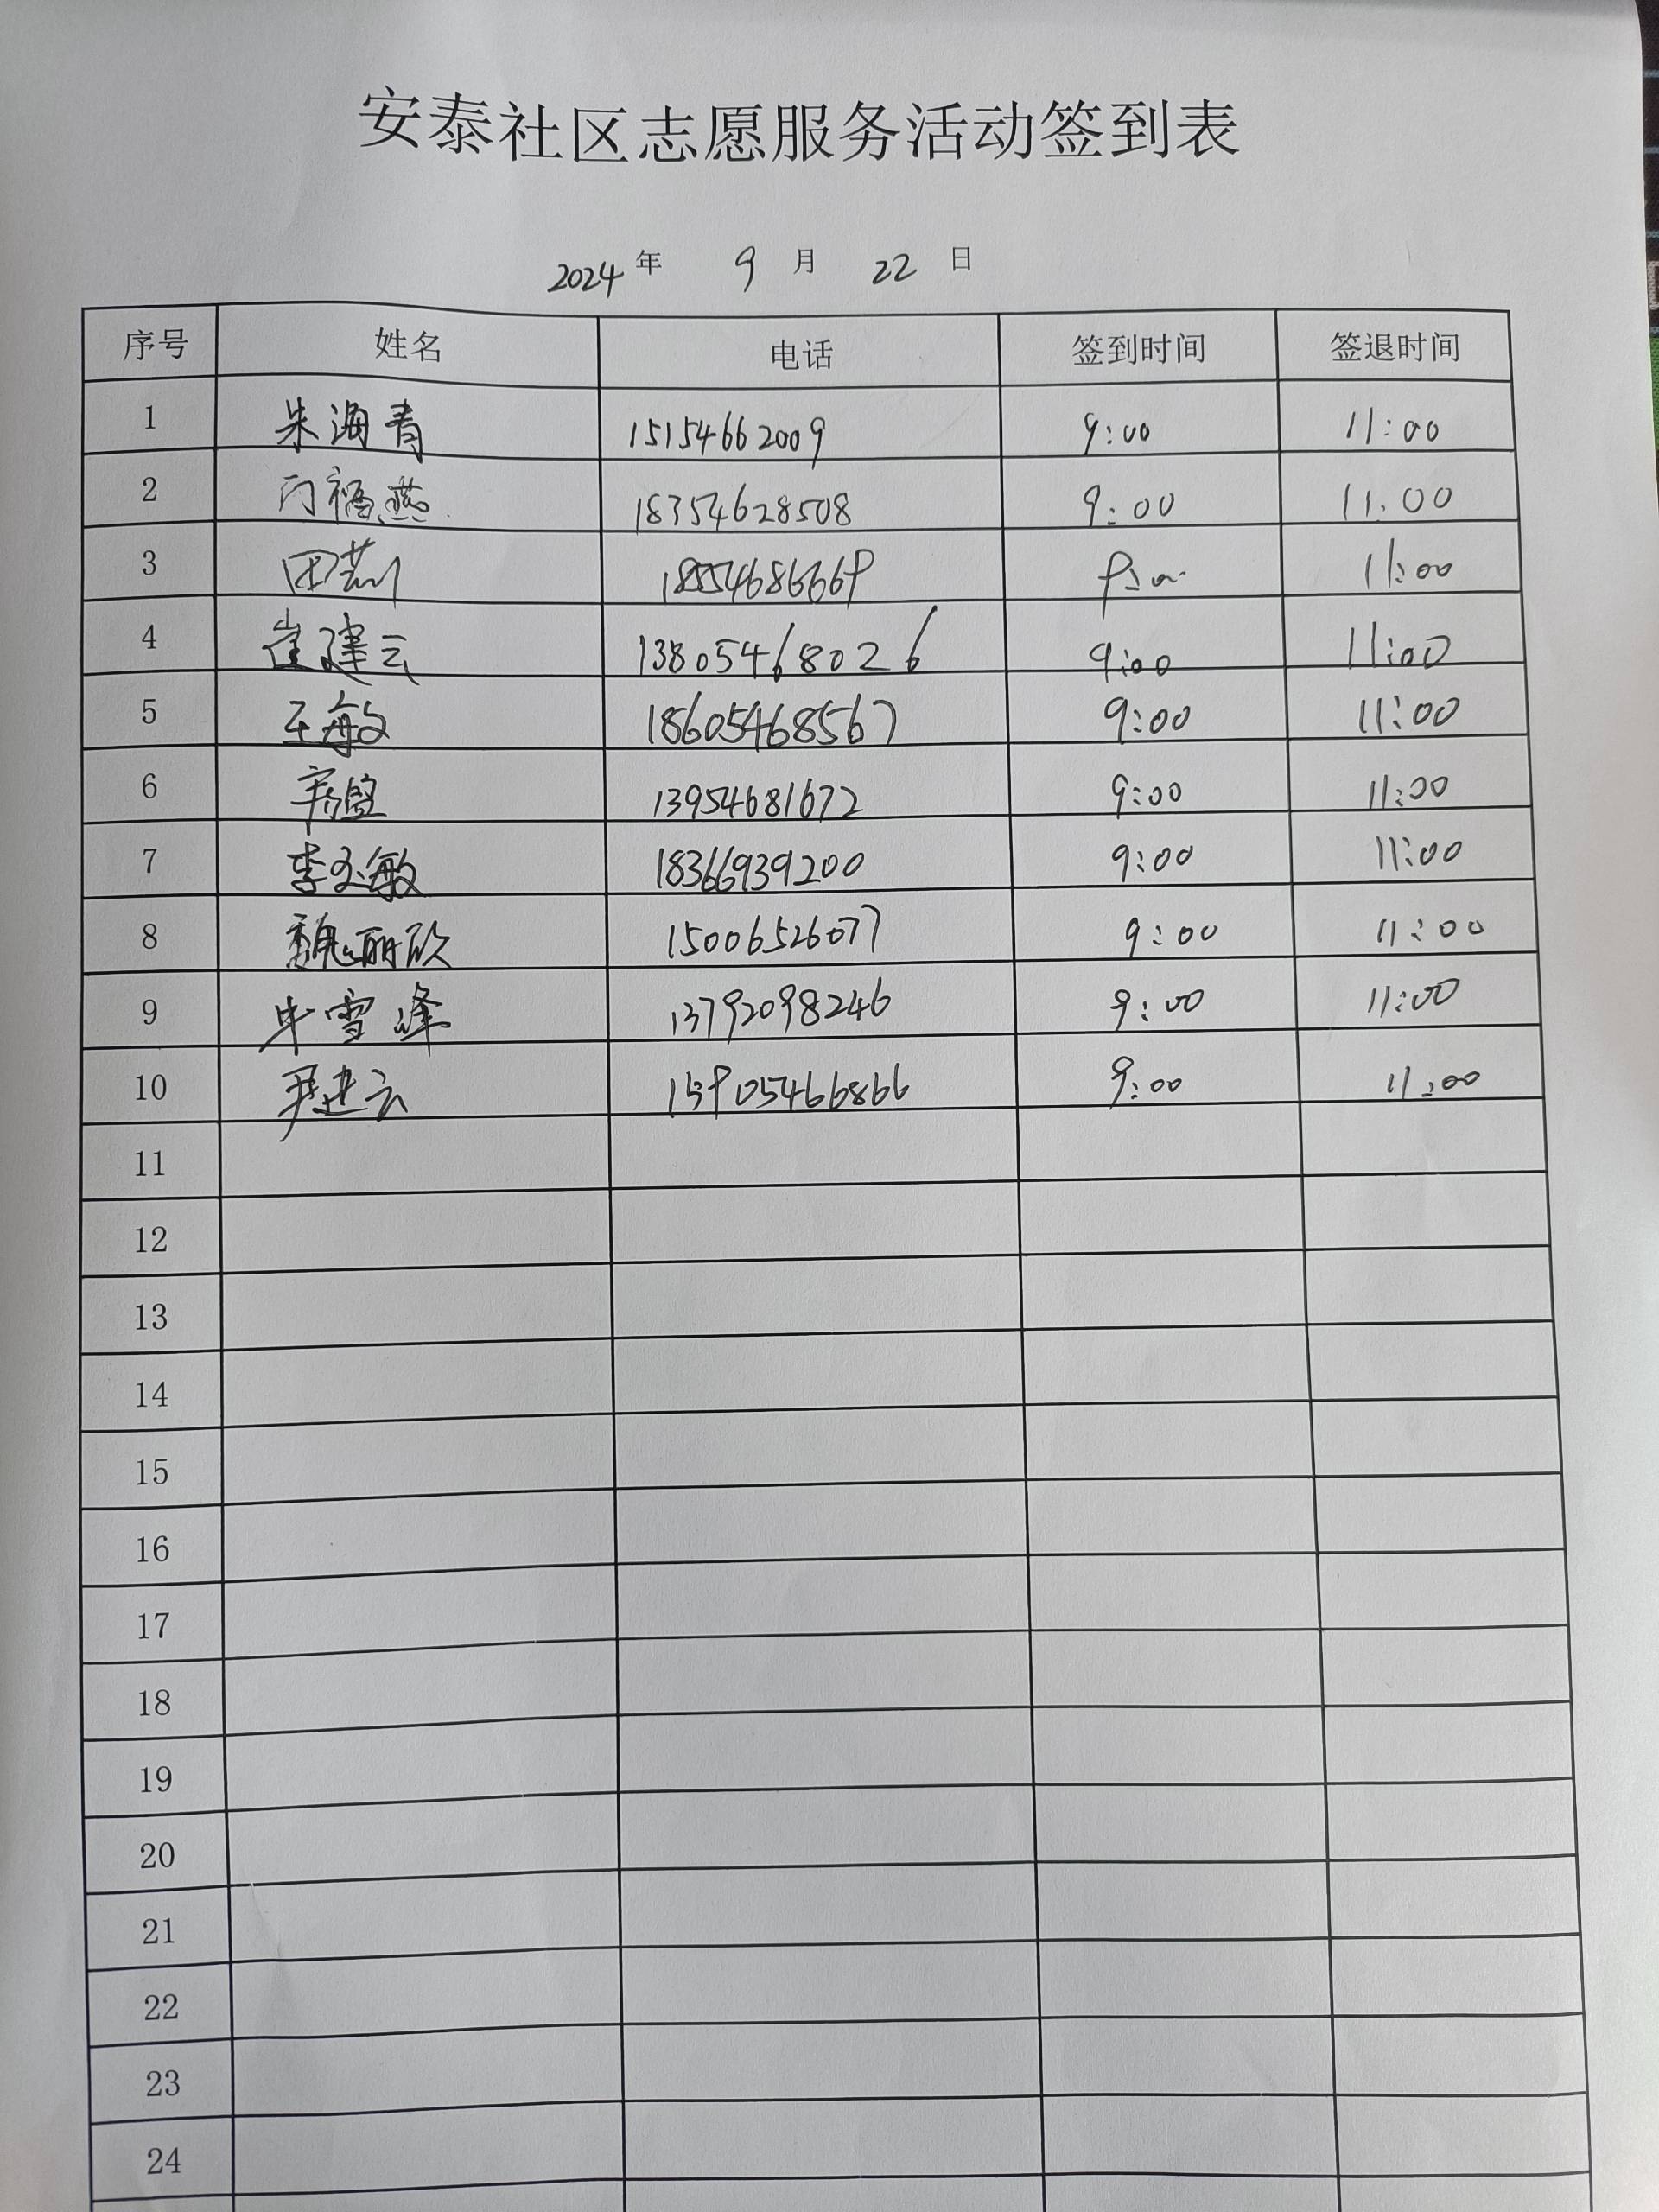 安泰社区志愿服务活动签到表
2024 年 9 月 22 日
序号 姓名 电话 签到时间 签退时间
1 朱海青 15154662009 9:00 11:00
2 门福燕 18354628508 9:00 11:00
3 田莉 18554686669 9:00 11:00
4 崔建云 13805468026 9:00 11:00
5 王敏 18605468567 9:00 11:00
6 13954681672 9:00 11:00
7 李玉敏 18366939200 9:00 11:00
8 魏丽欣 15006526077 9:00 11:00
9 牛雪峰 13792098246 9:00 11:00
10 尹建云 9:00 11:00
11
12
13
14
15
16
17
18
19
20
21
22
23
24